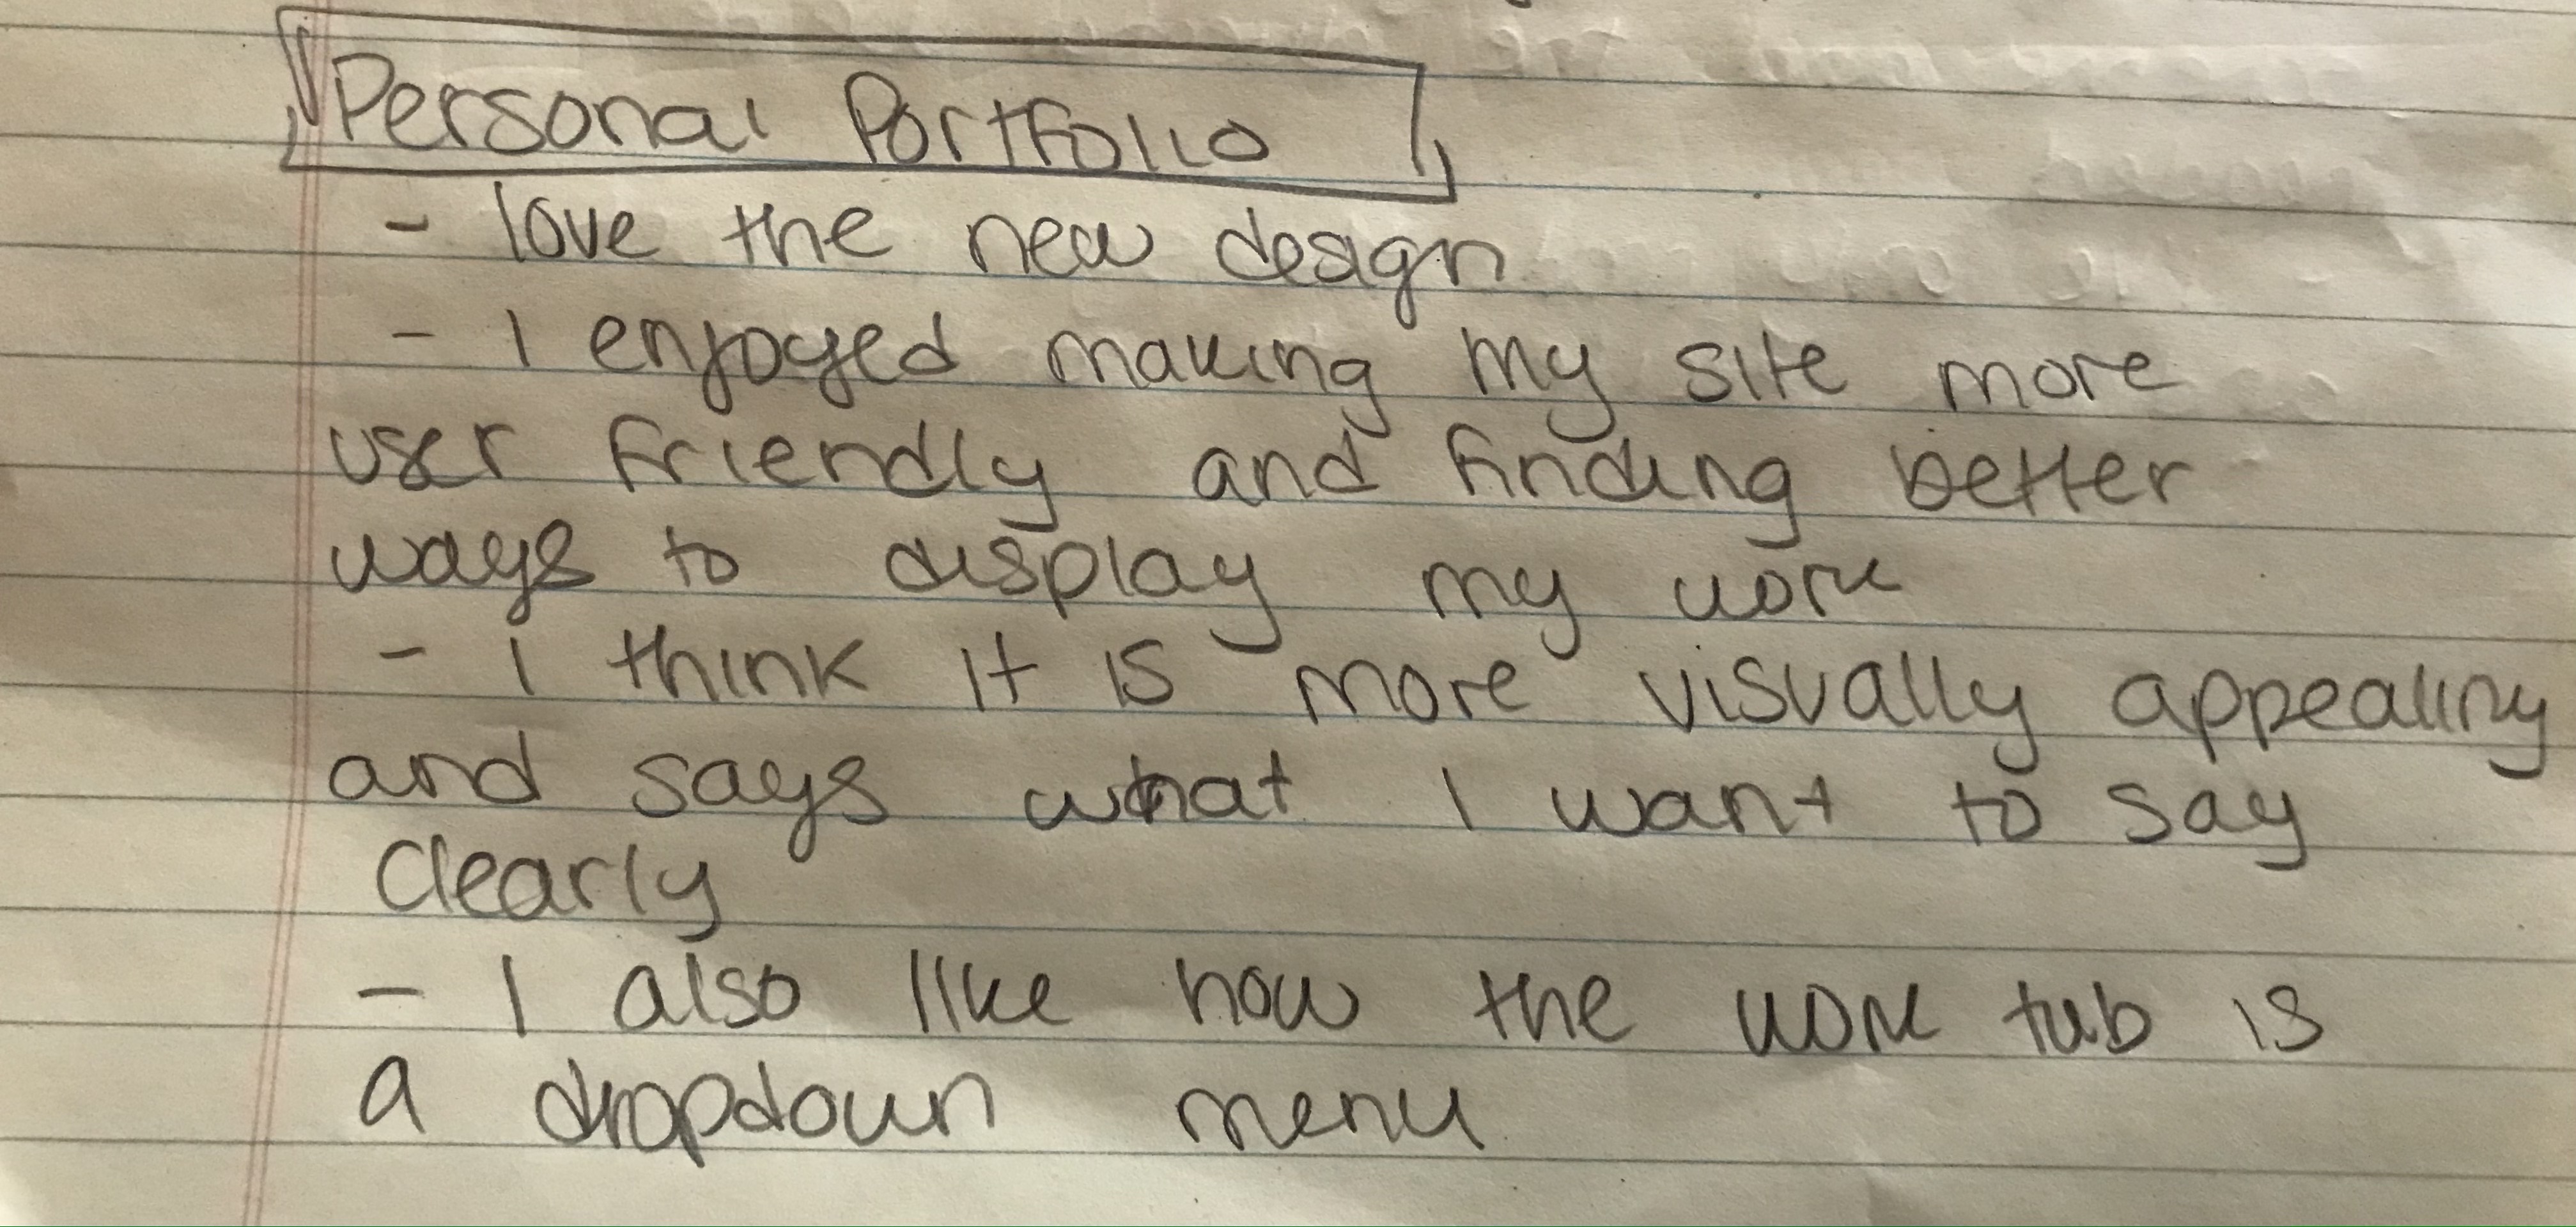 Personal Portfolio
- love the new design
- I enjoyed making my site more
user friendly and finding better
ways to display my work
- I think it is more visually appealing
and says what I want to say
clearly
- I also like how the work tab is
a dropdown menu